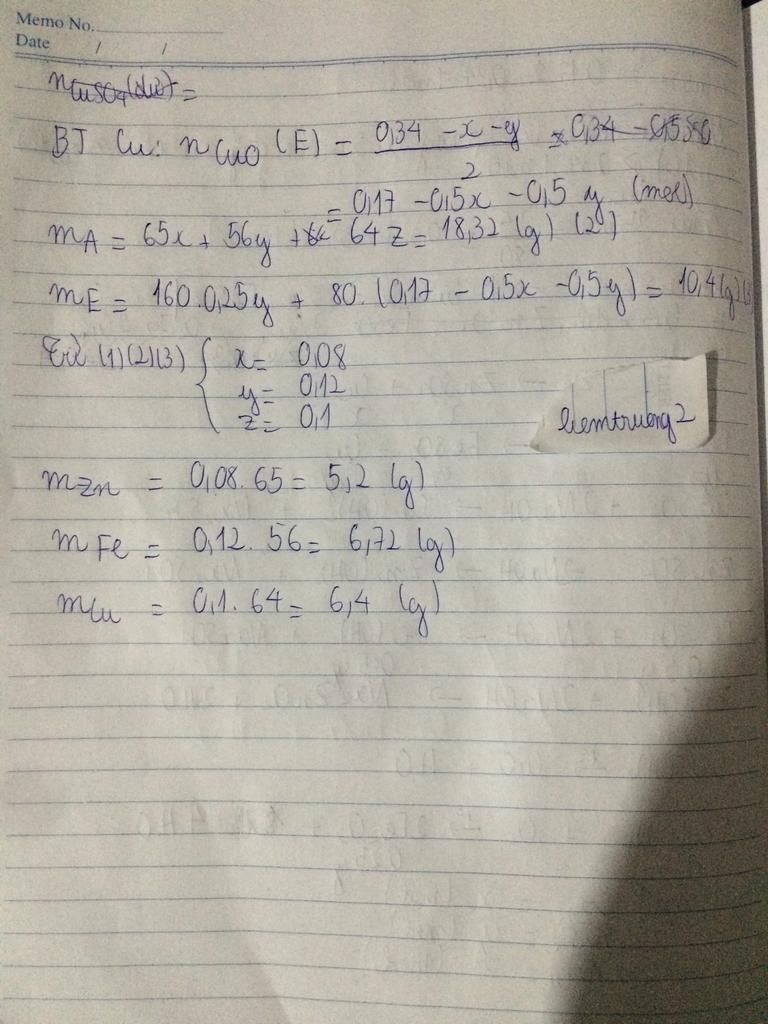 Memo No.
Date / /
nCuSO4(dư) =
BT Cu: nCuO (E) = (0,34 - x - y)/2 = 0,34 - 0,5
= 0,17 - 0,5x - 0,5y (mol)
mA = 65x + 56y + 64z = 18,32 (g) (2)
mE = 160.0,25y + 80.(0,17 - 0,5x - 0,5y) = 10,4(g)(3
Từ (1)(2)(3) { x = 0,08
y = 0,12
z = 0,1
liemtruong2
mZn = 0,08.65 = 5,2 (g)
mFe = 0,12.56 = 6,72 (g)
mCu = 0,1.64 = 6,4 (g)